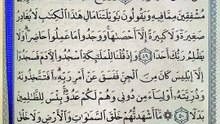 مُشْفِقِينَ مِمَّا فِيهِ وَيَقُولُونَ يَٰوَيْلَتَنَا مَالِ هَٰذَا ٱلْكِتَٰبِ لَا يُغَادِرُ
صَغِيرَةً وَلَا كَبِيرَةً إِلَّآ أَحْصَىٰهَا وَوَجَدُوا۟ مَا عَمِلُوا۟ حَاضِرًا وَلَا
يَظْلِمُ رَبُّكَ أَحَدًا ٤٩ وَإِذْ قُلْنَا لِلْمَلَٰٓئِكَةِ ٱسْجُدُوا۟ لِـَٔادَمَ فَسَجَدُوٓا۟
إِلَّآ إِبْلِيسَ كَانَ مِنَ ٱلْجِنِّ فَفَسَقَ عَنْ أَمْرِ رَبِّهِۦٓ أَفَتَتَّخِذُونَهُۥ
وَذُرِّيَّتَهُۥٓ أَوْلِيَآءَ مِن دُونِى وَهُمْ لَكُمْ عَدُوٌّۢ بِئْسَ لِلظَّٰلِمِينَ
مَّآ أَشْهَدتُّهُمْ خَلْقَ ٱلسَّمَٰوَٰتِ وَٱلْأَرْضِ وَلَا خَلْقَ